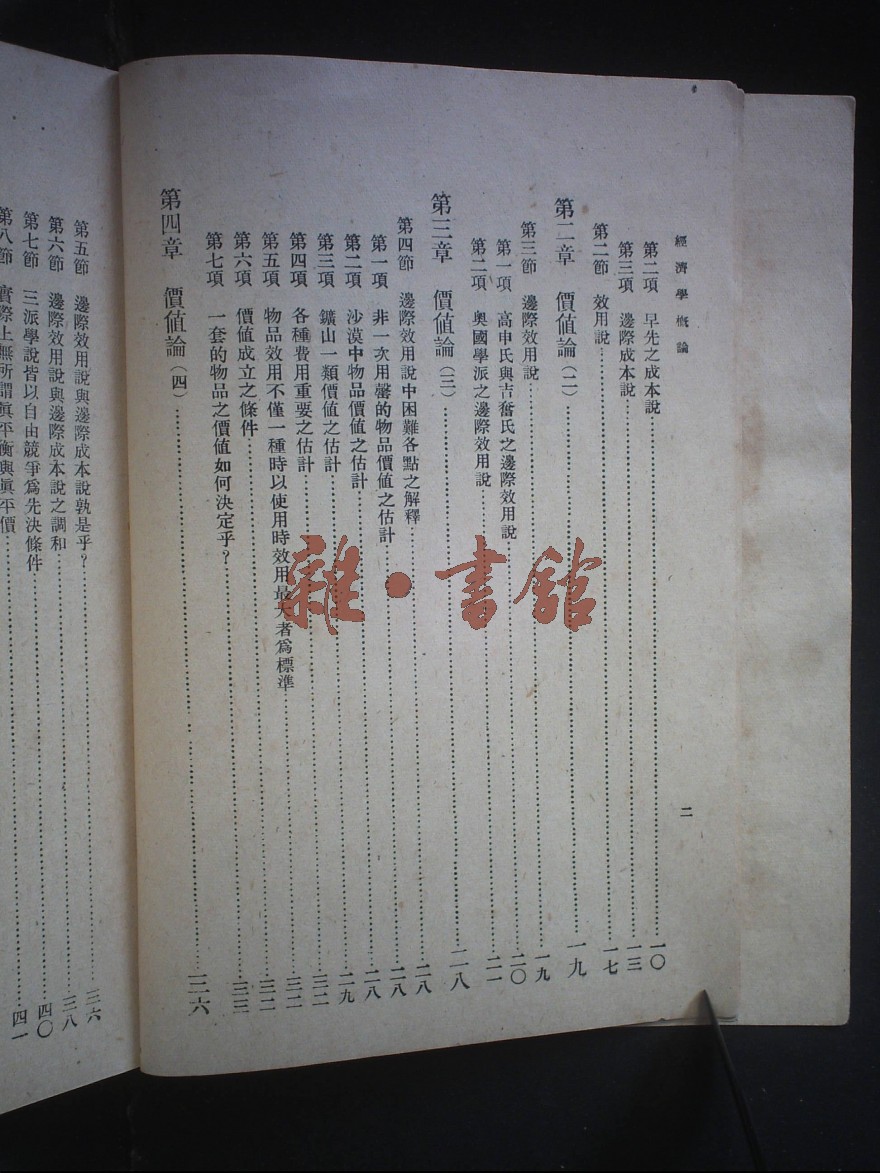 經濟學概論
二
第二項 早先之成本說 一〇
第三項 邊際成本說 一三
第二節 效用說 一七
第二章 價值論(二) 一九
第三節 邊際效用說 一九
第一項 高申氏與吉奮氏之邊際效用說 二〇
第二項 奧國學派之邊際效用說 二一
第三章 價值論(三) 二八
第四節 邊際效用說中困難各點之解釋 二八
第一項 非一次用罄的物品價值之估計 二八
第二項 沙漠中物品價值之估計 二九
第三項 鑛山一類價值之估計 三二
第四項 各種費用重要之估計 三二
第五項 物品效用不僅一種時以使用時效用最大者爲標準 三二
第六項 價值成立之條件 三三
第七項 一套的物品之價值如何決定乎?
第四章 價值論(四) 三六
第五節 邊際效用說與邊際成本說孰是乎? 三六
第六節 邊際效用說與邊際成本說之調和 三八
第七節 三派學說皆以自由競爭爲先決條件 四〇
第八節 實際上無所謂眞平衡與眞平價 四一
雜·書館